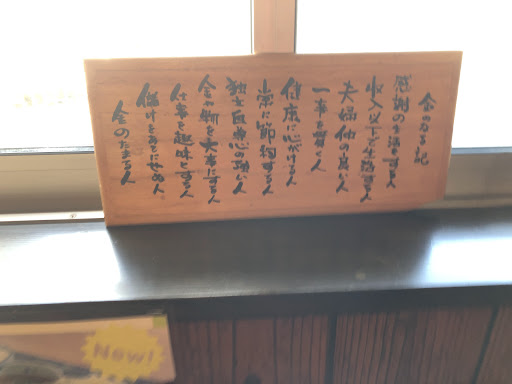 金のなる記
感謝の生活をする人
収入以下で生活する人
夫婦仲の良い人
一事を貫く人
健康に心がける人
常に節約する人
独立自尊心の強い人
金や物を大事にする人
仕事を趣味とする人
儲けをあてにせぬ人
金のたまる人
New!